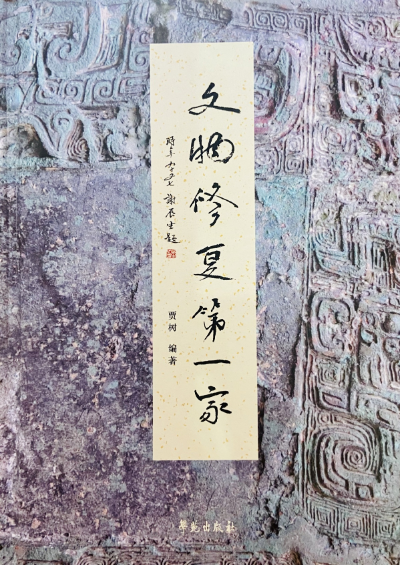 文物修复第一家
时年九十又七 谢辰生题
贾树 编著
学苑出版社